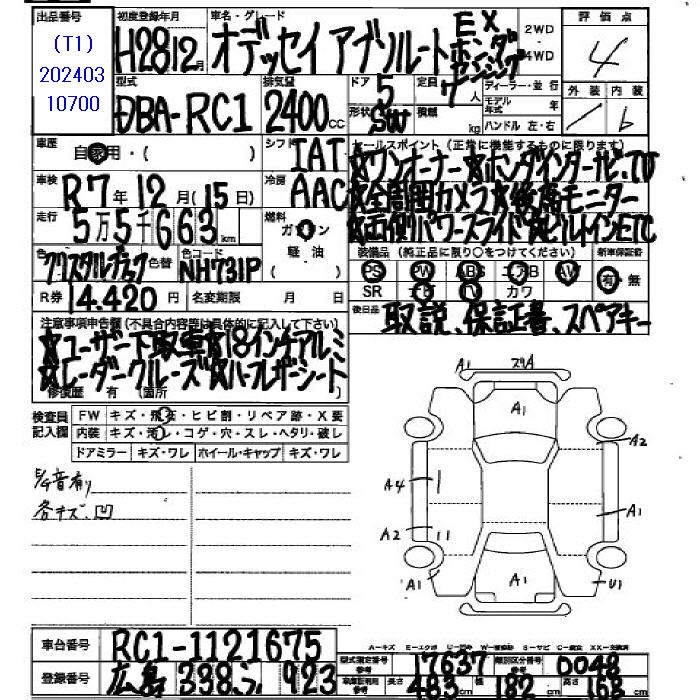 出品番号 初度登録年月 車名・グレード 評価点
(T1) H28 12月 オデッセイ アブソルート EX ホンダセンシング 2WD 4WD 4
202403
10700
型式 排気量 ドア 5 定員 7人 ディーラー・並行 外装 内装
DBA-RC1 2400cc 形状 SW 積載 kg モデル年式 年 ハンドル 左・右 b
車歴 自家用・( ) シフト IAT セールスポイント(正常に機能するものに限ります)
☆ワンオーナー☆ホンダインターナビ.TV
車検 R7年12月(15日) 冷房 AAC ☆全周囲カメラ☆後席モニター
走行 5万5千663km 燃料 ガソリン 軽油 ( ) ☆両側パワースライド☆ビルトインETC
色 クリスタルブラック 色替 色コード NH731P 装備品(純正品に限り○をつけてください) 新車保証書
PS PW ABS エアB AW 有・無
R券 14.420円 名変期限 月 日 SR ナビ TV カワ
後日品 取説、保証書、スペアキー
注意事項申告欄(不具合内容等は具体的に記入して下さい)
☆ユーザー下取車☆18インチアルミ
☆レーダークルーズ☆ハーフレザーシート
修復歴 有 (箇所
検査員記入欄 FW キズ・飛石・ヒビ割・リペア跡・X要
内装 キズ・汚レ・コゲ・穴・スレ・ヘタリ・破レ
ドアミラー キズ・ワレ ホイール・キャップ キズ・ワレ
A1 スリA
A1
A2
A4
A1
A2
A1 A1 U1
各キズ.凹
A=キズ E=エクボ U=凹み W=補修跡 S=サビ C=腐食 XX=交換済
車台番号 RC1-1121675 型式指定番号 17637 類別区分番号 0048
登録番号 広島 338 ふ 923 長さ 483cm 幅 182cm 高さ 168cm